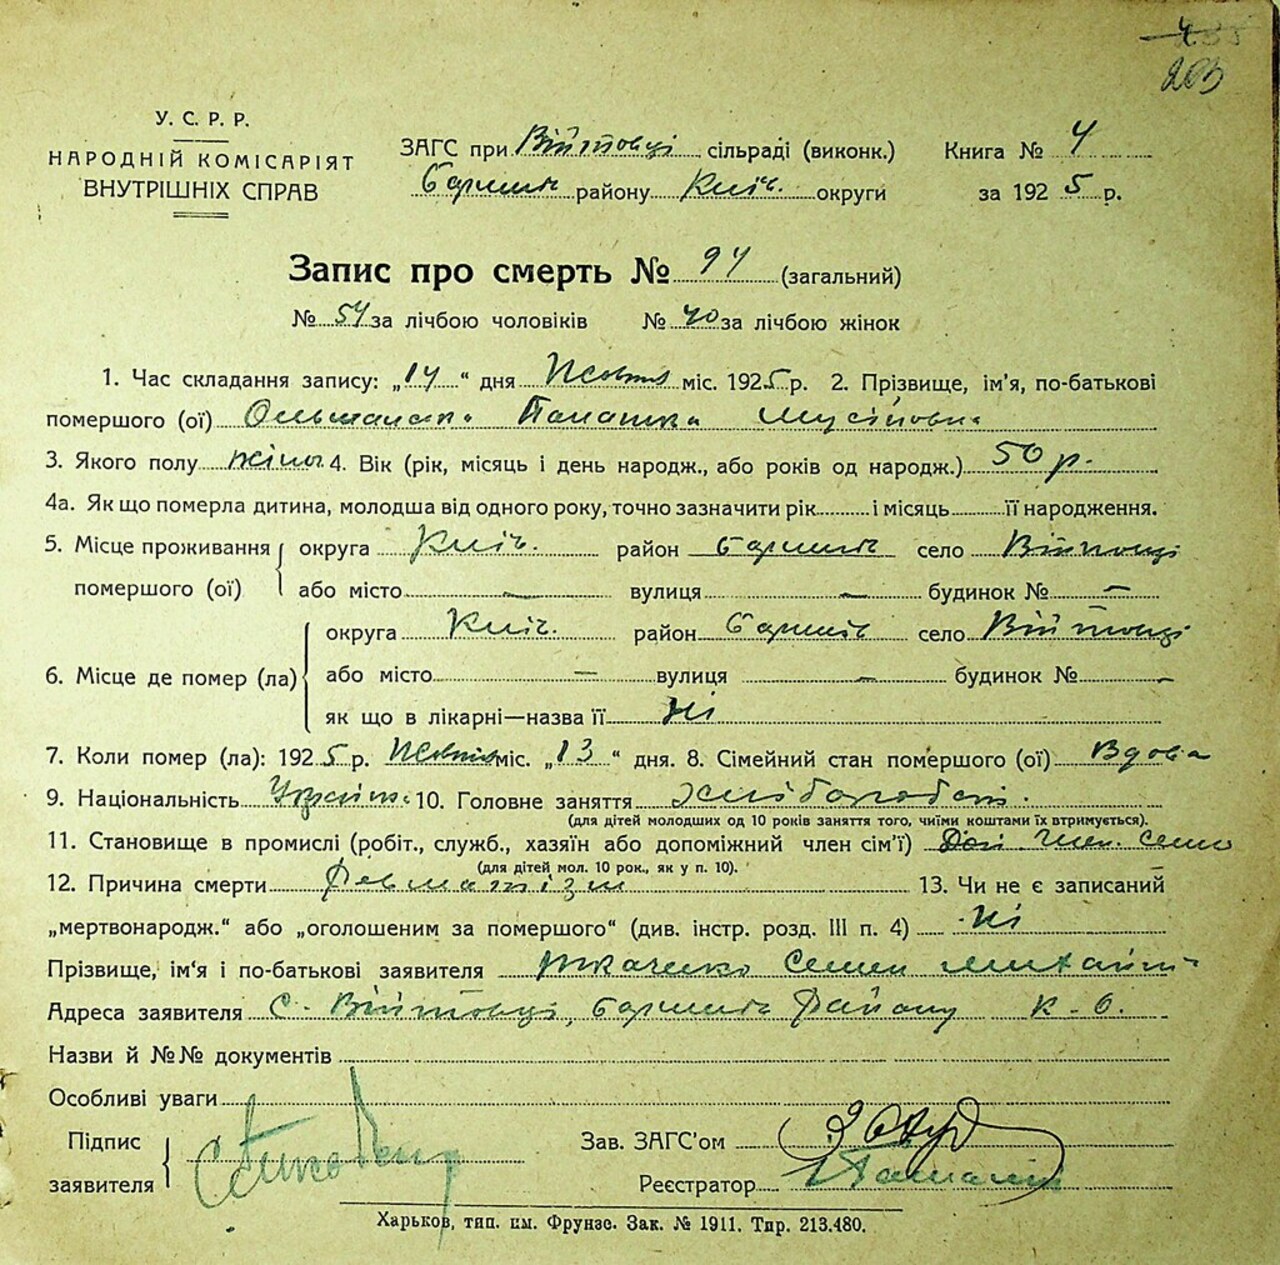 203
У. С. Р. Р.
НАРОДНІЙ КОМІСАРІЯТ
ВНУТРІШНІХ СПРАВ
ЗАГС при Війтовці сільраді (виконк.)
Баришів району Київ. округи
Книга № 4
за 1925 р.
Запис про смерть № 94 (загальний)
№ 54 за лічбою чоловіків № 40 за лічбою жінок
1. Час складання запису: „14“ дня Жовтня міс. 1925 р. 2. Прізвище, ім'я, по-батькові
помершого (ої) Ольшанська Палашка Мусіївна
3. Якого полу жіноч. 4. Вік (рік, місяць і день народж., або років од народж.) 50 р.
4а. Як що померла дитина, молодша від одного року, точно зазначити рік і місяць її народження.
5. Місце проживання помершого (ої) округа Київ. район Баришів село Війтовці
або місто — вулиця — будинок № —
6. Місце де помер (ла) округа Київ. район Баришів село Війтовці
або місто — вулиця — будинок № —
як що в лікарні—назва її ні
7. Коли помер (ла): 1925 р. Жовтня міс. „13“ дня. 8. Сімейний стан помершого (ої) Вдова
9. Національність Україн. 10. Головне заняття Хліборобст.
(для дітей молодших од 10 років заняття того, чиїми коштами їх втримується).
11. Становище в промислі (робіт., служб., хазяїн або допоміжний член сім'ї) Доп. член. семї
(для дітей мол. 10 рок., як у п. 10).
12. Причина смерти Ревматізм 13. Чи не є записаний
„мертвонародж.“ або „оголошеним за помершого“ (див. інстр. розд. III п. 4) Ні
Прізвище, ім'я і по-батькові заявителя Ткаченко Семен Михайл
Адреса заявителя С. Війтовці, Баришів Району К. О.
Назви й №№ документів
Особливі уваги
Підпис заявителя
Зав. ЗАГС'ом
Реєстратор
Харьков, тип. им. Фрунзе. Зак. № 1911. Тир. 213.480.